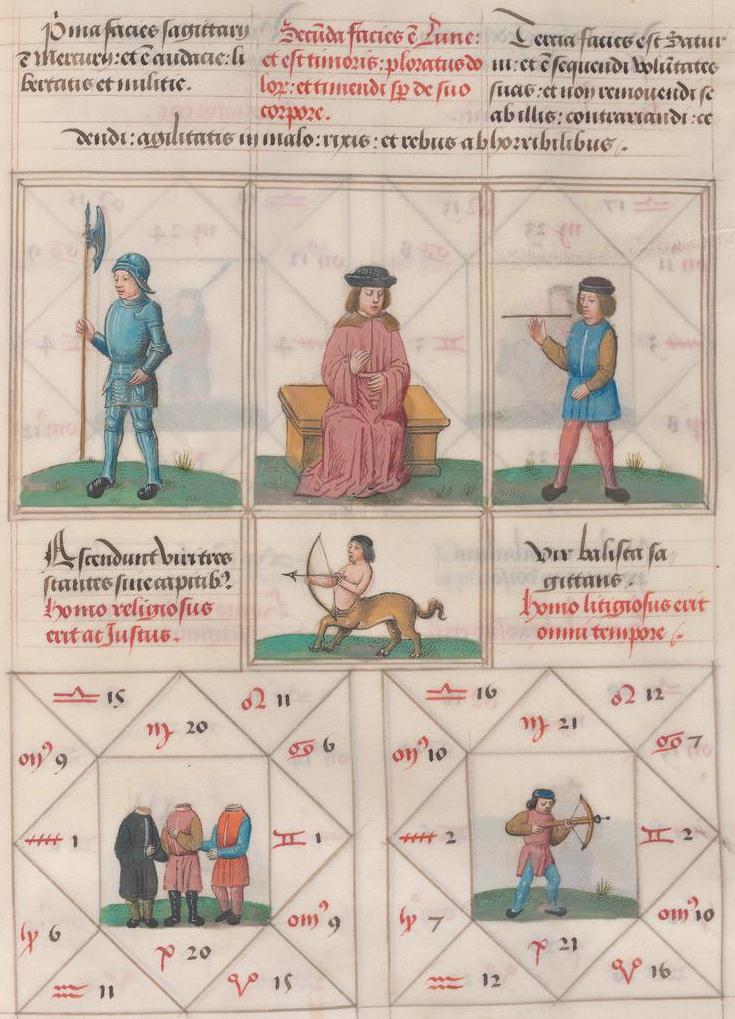 Prima facies sagittarij
ē Mercurij: et ē audacie: li
bertatis et militie.
Secūda facies ē Lune:
et est timoris: ploratus do
lor̄: et timendi sp̄ de suo
corpore.
Tercia facies est Satur
ni: et ē sequendi volūtates
suas: et non removendi se
ab illis: contrariandi: ce
dendi: agilitatis in malo: rixis: et rebus abhorribilibus.
Ascendunt viri tres
stantes sine capitib9
homo religiosus
erit ac Justus.
Vir balista sa
gittans.
homo litigiosus erit
omni tempore.
♎ 15
♌ 11
♍ 20
♏ 9
♋ 6
♐ 1
♊ 1
♑ 6
♉ 9
♓ 20
♒ 11
♈ 15
♎ 16
♌ 12
♍ 21
♏ 10
♋ 7
♐ 2
♊ 2
♑ 7
♉ 10
♓ 21
♒ 12
♈ 16